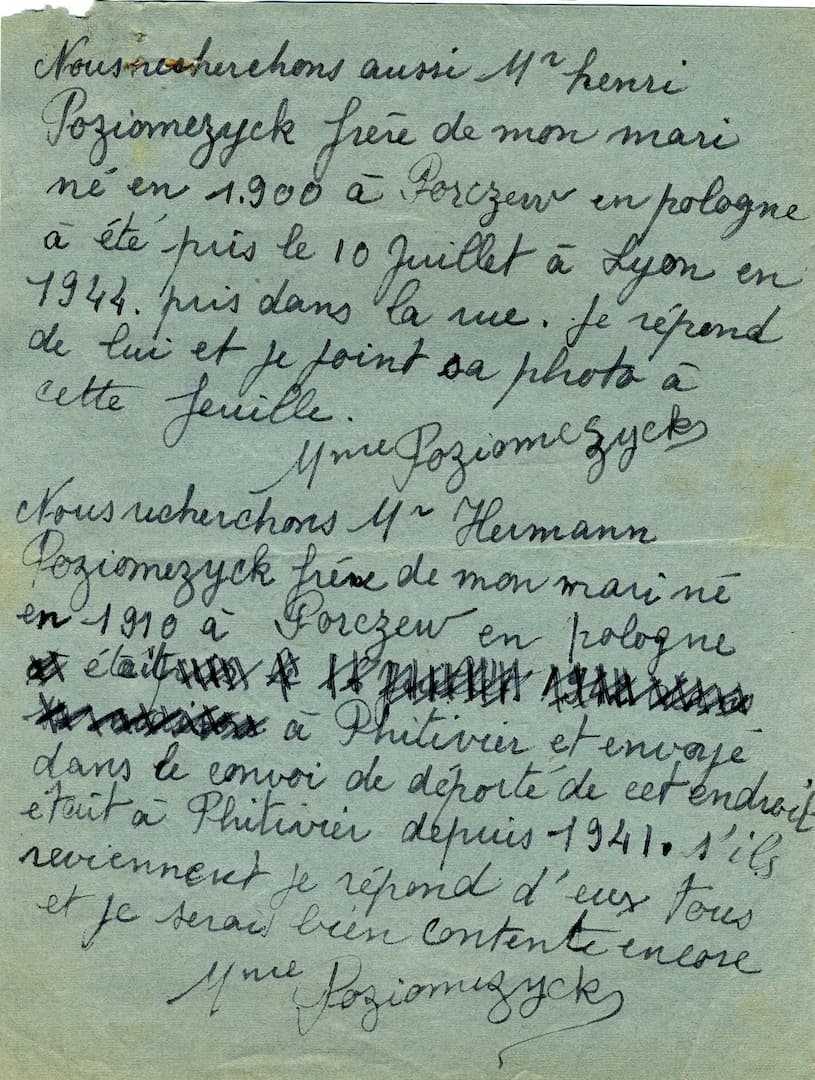 Nous recherchons aussi Mr henri
Poziomezyck frère de mon mari
né en 1.900 à Porczew en pologne
à été pris le 10 Juillet à Lyon en
1944. pris dans la rue. Je répond
de lui et je joint sa photo à
cette feuille.
Mme Poziomezyck
Nous recherchons Mr Hermann
Poziomezyck frère de mon mari né
en 1910 à Porczew en pologne
était
à Phitivier et envoyé
dans le convoi de déporté de cet endroit
était à Phitivier depuis 1941. s'ils
reviennent je répond d'eux tous
et je serai bien contente encore
Mme Poziomezyck